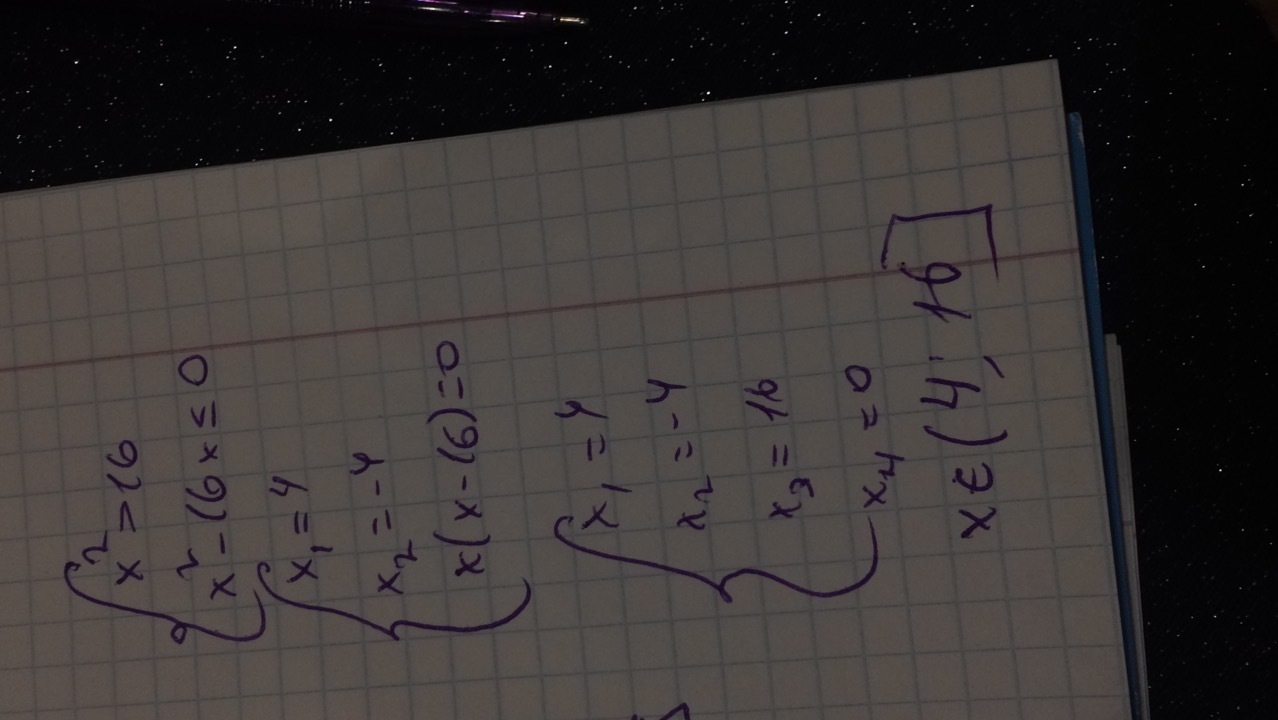 x² > 16
x² - 16x ≤ 0
x₁ = 4
x₂ = -4
x(x-16)=0
x₁ = 4
x₂ = -4
x₃ = 16
x₄ = 0
x ∈ (4; 16]